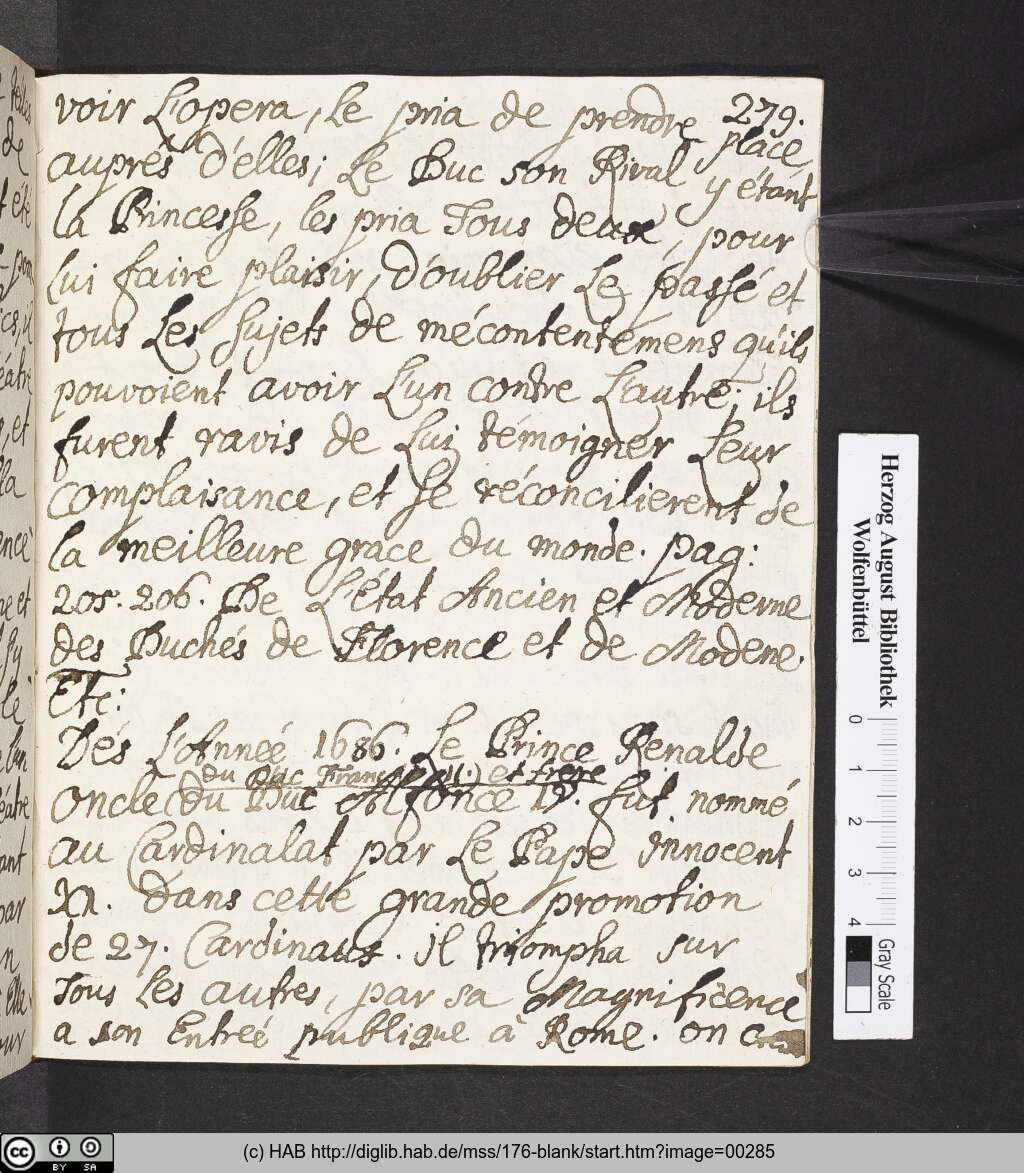 279.
voir L'opera, Le pria de prendre place
auprés d'elles; Le Duc son Rival y étant
la Princesse, les pria Tous deux, pour
Lui faire plaisir, d'oublier Le passé et
tous Les Sujets de mécontentemens qu'ils
pouvoient avoir L'un contre L'autre; ils
furent ravis de Lui témoigner Leur
complaisance, et Se réconcilierent de
la meilleure grace du monde. pag:
205. 206. De L'état Ancien et Moderne
des Duchés de Florence et de Modene.
Etc:
Dés L'Anneé 1686. Le Prince Renalde
du Duc et frere
oncle du Duc Alfonce IV. fut nommé
au Cardinalat par Le Pape innocent
XI. dans cette grande promotion
de 27. Cardinaux. il triompha sur
Tous Les autres, par sa Magnificence
a son Entreé publique à Rome. on
Herzog August Bibliothek
Wolfenbüttel
0 1 2 3 4
Gray Scale
cc BY SA
(c) HAB http://diglib.hab.de/mss/176-blank/start.htm?image=00285